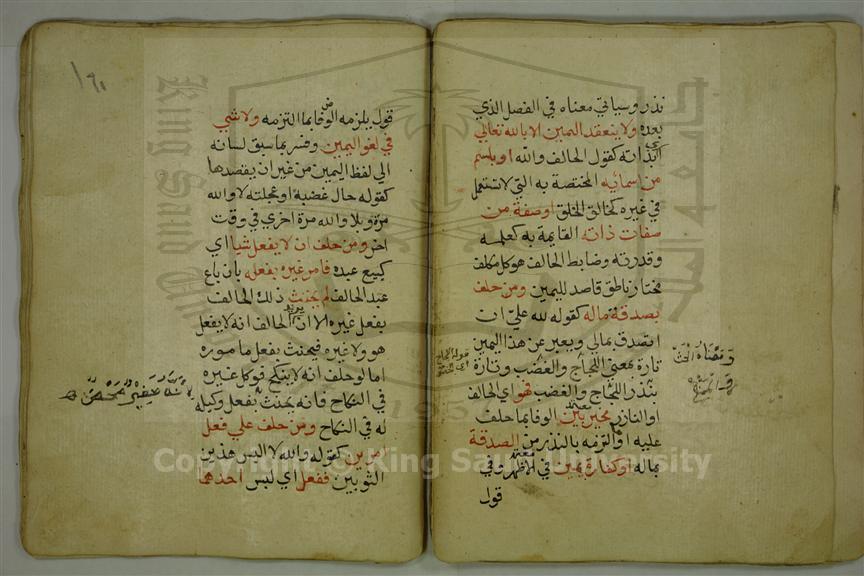 نذر وسياتي معناه في الفصل الذي
بعده ولا ينعقد اليمين الا بالله تعالي
اي بذاته كقول الحالف والله او باسم
من اسمائه المختصة به التي لا تستعمل
في غيره كخالق الخلق او صفة من
صفات ذاته القايمة به كعلمه
وقدرته وضابط الحالف هو كل مكلف
مختار ناطق قاصد لليمين ومن حلف
بصدقة ماله كقوله لله علي ان
اتصدق بمالي ويعبر عن هذا اليمين
تارة بمعني اللجاج والغضب وتارة
بنذر اللجاج والغضب فهو اي الحالف
او الناذر مخير بين الوفا بما حلف
عليه او التزمه بالنذر من الصدقة
بماله او كفارة يمين في الاظهر وفي
قول
قول يلزمه الوفا بما التزمه ولا شي
في لغو اليمين وفسر بما سبق لسانه
الي لفظ اليمين من غير ان يقصدها
كقوله حال غضبه او عجلته لا والله
مرة وبلا والله مرة اخري في وقت
اخر ومن حلف ان لا يفعل شيا اي
كبيع عبده فامر غيره بفعله بان باع
عبد الحالف لم يحنث ذلك الحالف
بفعل غيره الا ان يريد الحالف انه لا يفعل
هو ولا غيره فيحنث بفعل ماموره
اما لو حلف انه لا ينكح فوكل غيره
في النكاح فانه يحنث بفعل وكيله
له في النكاح ومن حلف علي فعل
امرين كقوله والله لا البس هذين
الثوبين ففعل اي لبس احدهما
Copyright © King Saud University
King Saud
1957